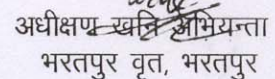 अधीक्षण खनि अभियन्ता
भरतपुर वृत, भरतपुर